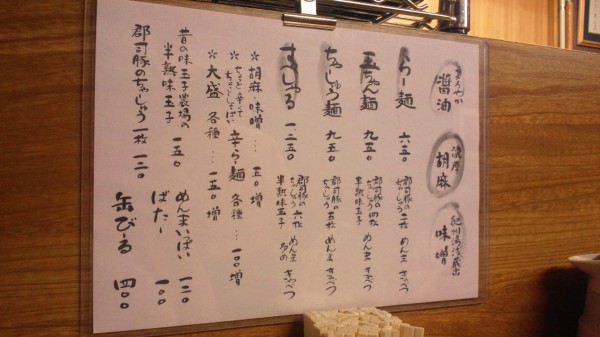 まろやか
醤油
濃厚
胡麻
紀州湯浅蔵出
味噌
らー麺 六五〇
郡司豚の
ちゃしゅう 二枚 めんま きゃべつ
玉ちゃん麺 九五〇
郡司豚の
ちゃしゅう 四枚 めんま きゃべつ
半熟味玉子
ちゃしゅう麺 九五〇
郡司豚の
ちゃしゅう 五枚 めんま きゃべつ
すぺしゃる 一二五〇
郡司豚の
ちゃしゅう 六枚 めんま 多め きゃべつ
半熟味玉子
＊胡麻・味噌… 五〇増
＊ちょっと辛くて
ちょこっとしょっぱい 辛らー麺 各種… 一〇〇増
＊大盛 各種… 一五〇増
昔の味 玉子農場の
半熟味玉子 一五〇
郡司豚のちゃしゅう 一枚 一二〇
めんまいっぱい 一二〇
ばたー 一〇〇
缶びーる 四〇〇